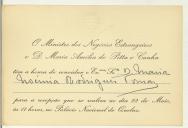 O Ministro dos Negócios Estrangeiros
e D. Maria Amélia de Pitta e Cunha
têm a honra de convidar a Exᵐᵃ Srᵃ D. Maria
Rodrigues
para a recepção que se realiza no dia 23 de Maio,
às 11 horas, no Palácio Nacional de Queluz.